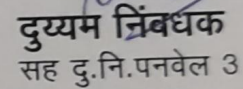 दुय्यम निंबधक
सह दु.नि.पनवेल 3